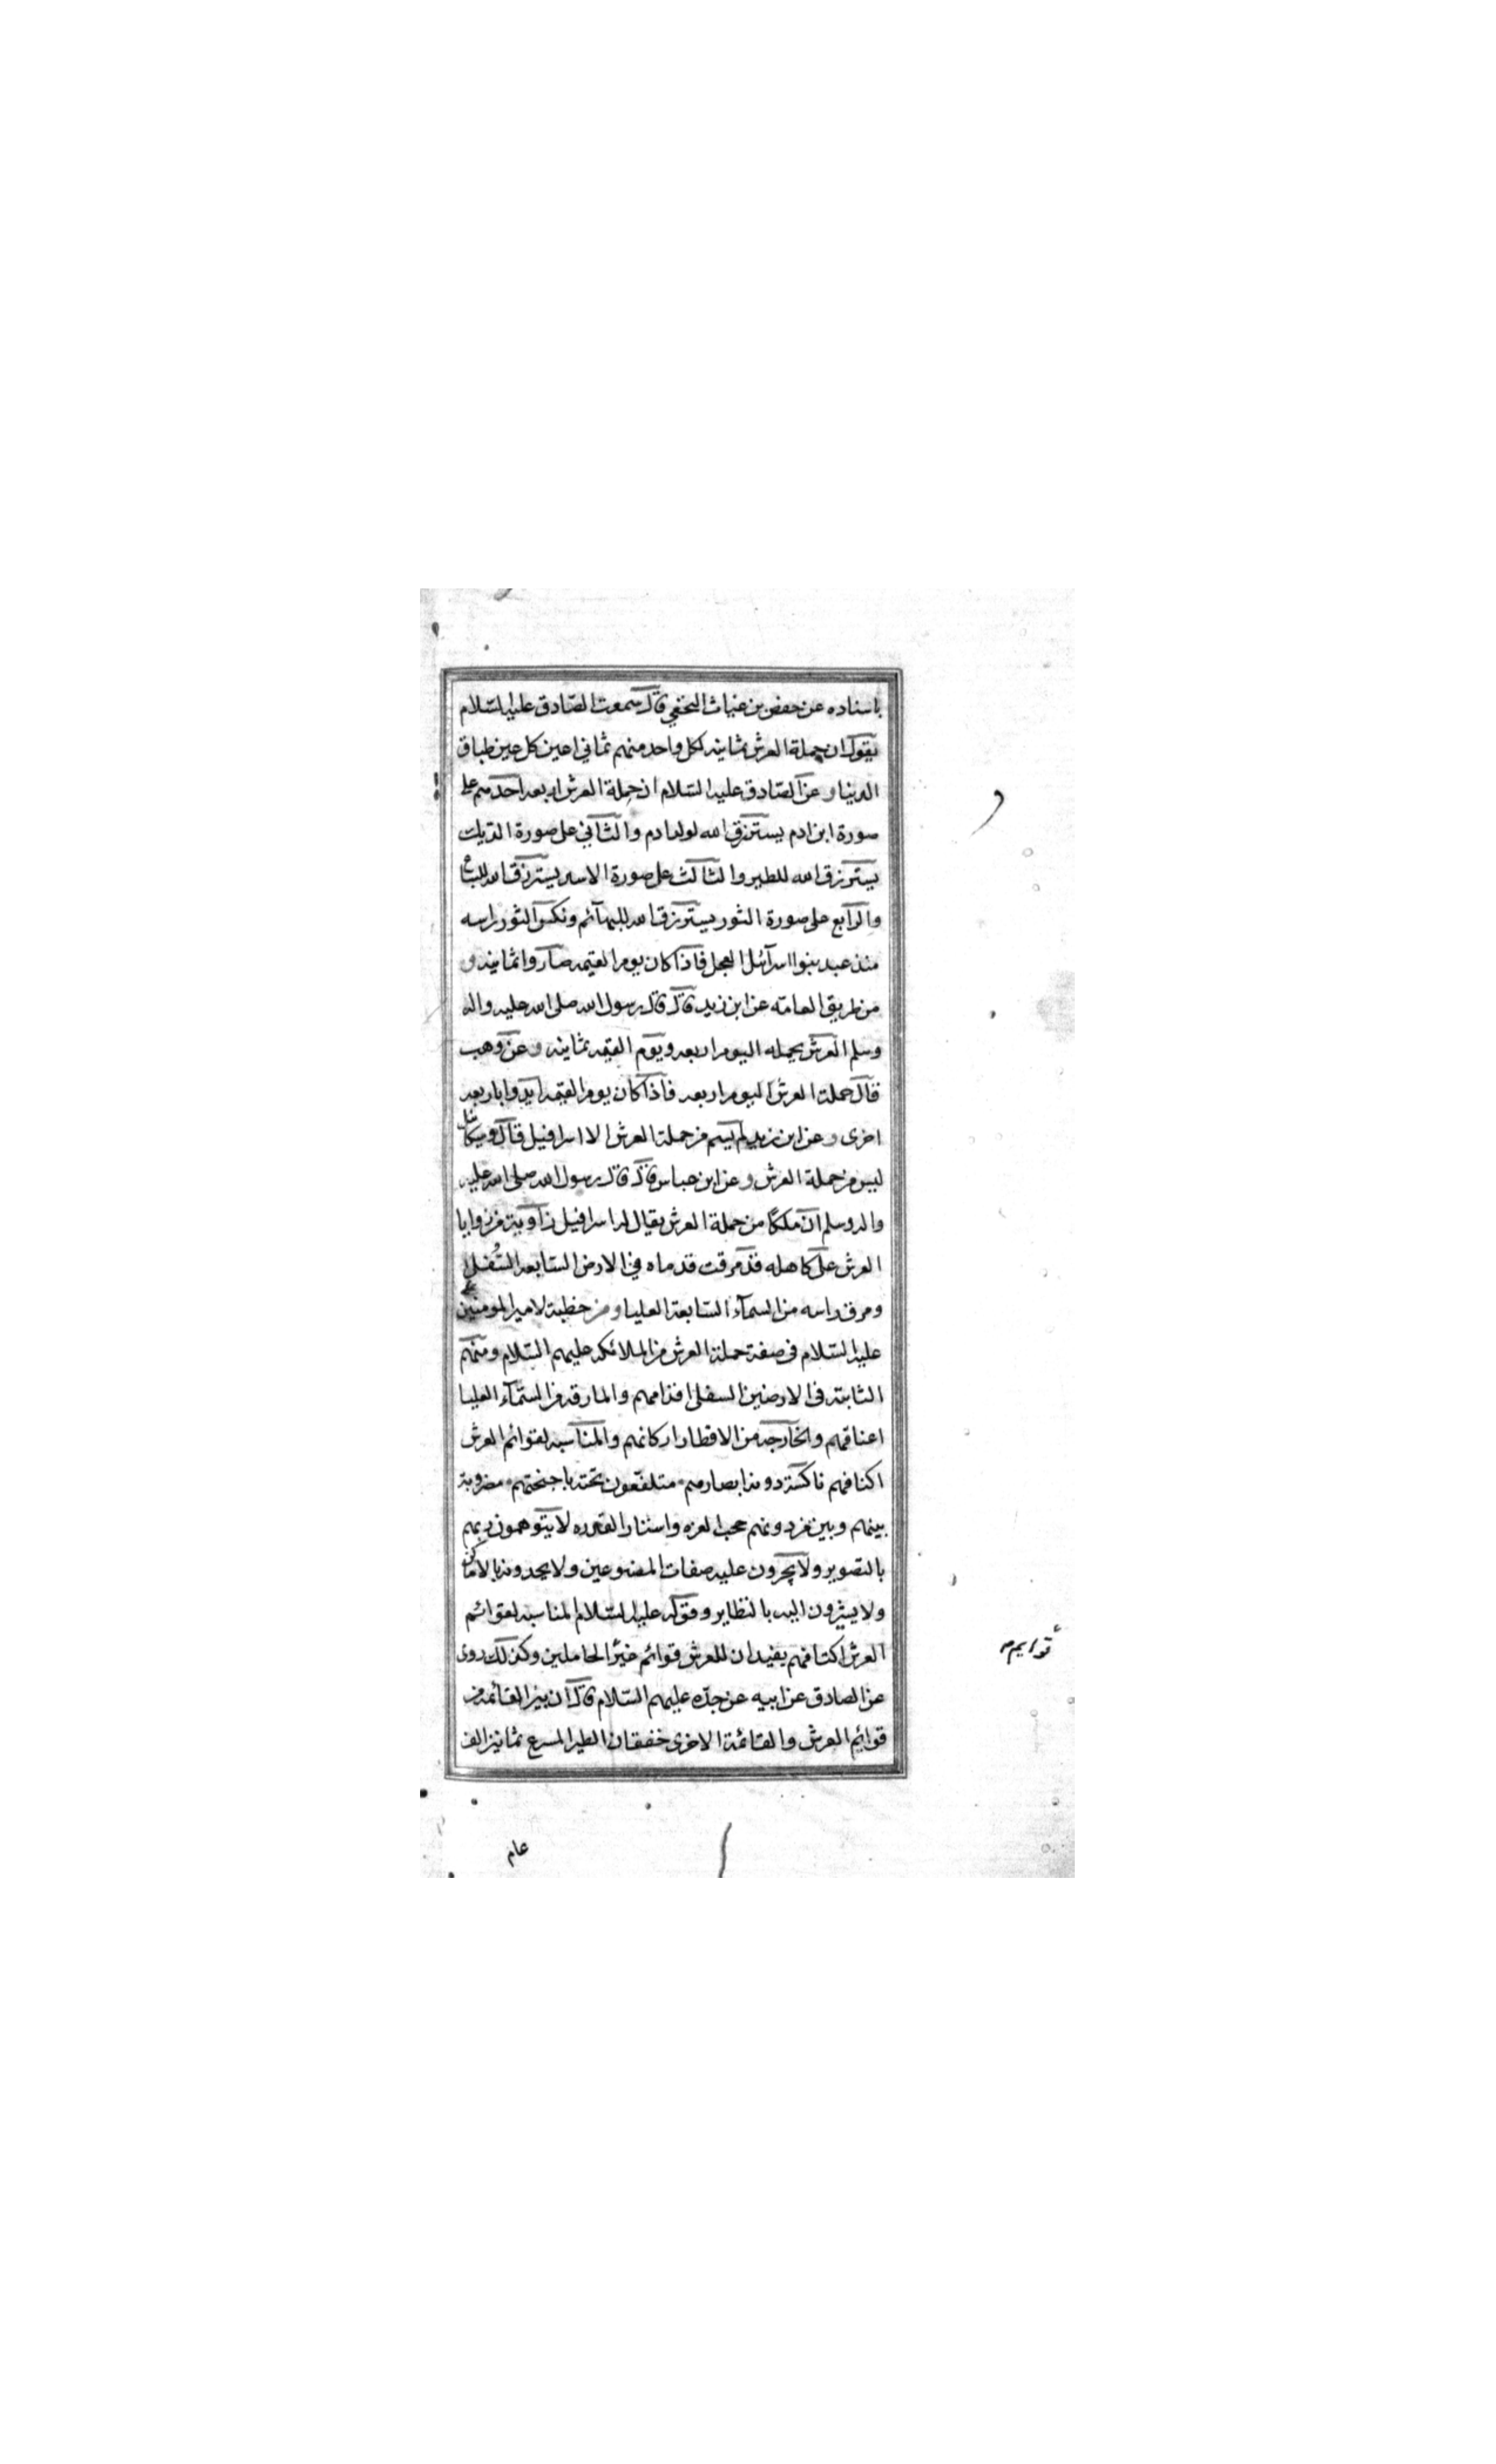 باسناده عن حفص بن غياث النخعي قال سمعت الصادق عليه السلام
يقول ان حملة العرش ثمانيه لكل واحد منهم ثماني اعين كل عين طباق
الدنيا و عن الصادق عليه السلام ان حملة العرش اربعه احدهم على
صورة ابن ادم يسترزق الله لولد ادم والثاني على صورة الديك
يسترزق الله للطير والثالث على صورة الاسد يسترزق الله للسباع
والرابع على صورة الثور يسترزق الله للبهآئم ونكس الثور راسه
منذ عبد بنوا اسرآئل العجل فاذا كان يوم القيمه صاروا ثمانيه و
من طريق العامه عن ابن زيد قال قال رسول الله صلى الله عليه واله
وسلم العرش يحمله اليوم اربعه ويوم القيمه ثمانيه وعن وهب
قال حملة العرش اليوم اربعه فاذا كان يوم القيمه ايدوا باربعه
اخرى وعن ابن زيد لم يسم من حملة العرش الا اسرافيل قال وميكائيل
ليس من حملة العرش وعن ابن عباس قال قال رسول الله صلى الله عليه
واله وسلم ان ملكًا من حملة العرش يقال له اسرافيل زاوية من زوايا
العرش على كاهله قد مرقت قدماه في الارض السابعه السُفلى
ومرق راسه من السمآء السابعة العليا ومن خطبة لامير المومنين
عليه السلام في صفة حملة العرش من الملائكه عليهم السلام ومنهم
الثابتة في الارضين السفلى اقدامهم والمارقه من السمآء العليا
اعناقهم والخارجه من الاقطار اركانهم والمناسبه لقوائم العرش
اكتافهم ناكسة دونه ابصارهم متلفعون تحته باجنحتهم مضروبة
بينهم وبين من دونهم حجب العزه واستار القدره لا يتوهمون ربهم
بالتصوير ولا يجرون عليه صفات المصنوعين ولا يحدونه بالاماكن
ولا يشيرون اليه بالنظاير وقوله عليه السلام المناسبه لقوائم
العرش اكتافهم يفيد ان للعرش قوائم غير الحاملين وكذلك روى
عن الصادق عن ابيه عن جدّه عليهم السلام قال ان بين القائمة من
قوايم العرش والقائمة الاخرى خفقان الطير المسرع ثمانين الف
قوايم
عام